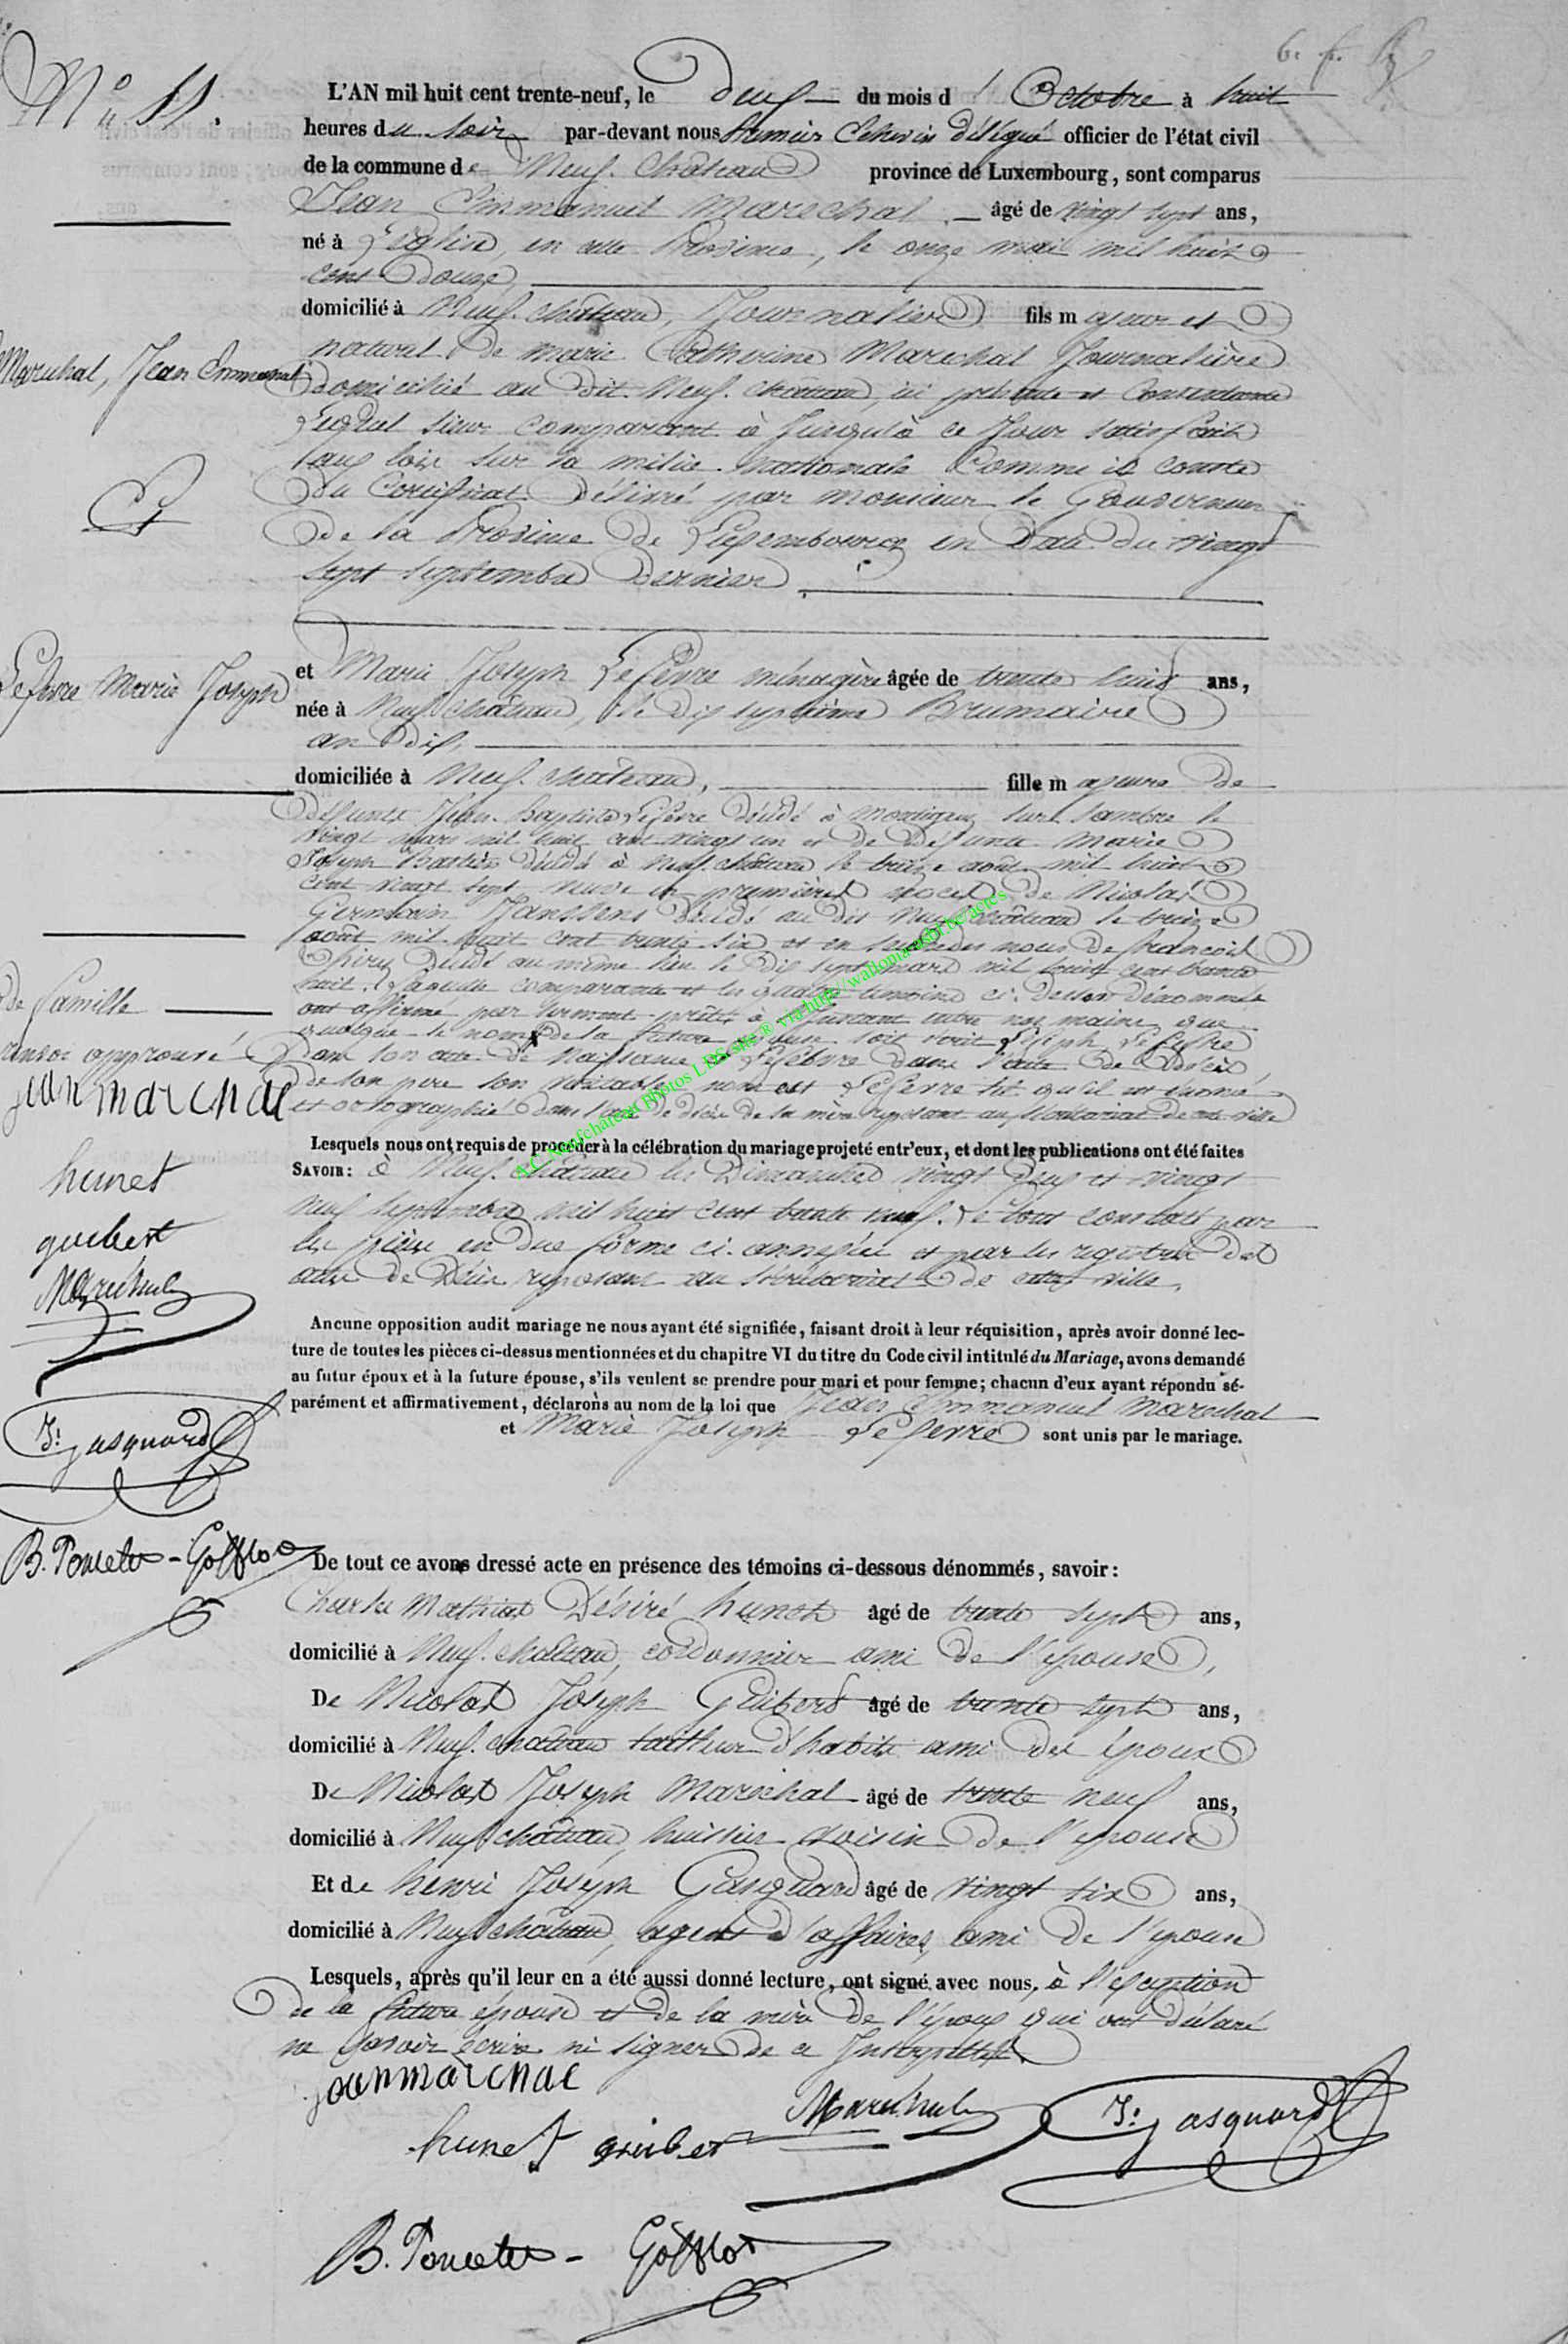 N° 11.
L'AN mil huit cent trente-neuf, le deux du mois d'Octobre à huit
heures du soir par-devant nous premier Echevin délégué officier de l'état civil
de la commune de Neuf-château province de Luxembourg, sont comparus
Jean Emmanuel Marechal âgé de vingt sept ans,
né à Léglise, en cette Province, le onze mai mil huit
cent douze,
domicilié à Neuf-château, Journalier fils majeur et
naturel de marie Catherine Marechal Journalière
Marechal, Jean Emmanuel
domiciliée au dit Neuf-château, ici présente et Consentante
Lequel sieur comparant à Jusqu'à ce Jour satisfait
aux lois sur la milice nationale Comme il conste
du Certificat délivré par monsieur le Gouverneur
Et
de la Province de Luxembourg en date du vingt
sept septembre dernier
Lefevre Marie Joseph
et Marie Joseph Lefevre ménagère âgée de trente huit ans,
née à Neufchâteau, le dix septième Brumaire
an dix,
domiciliée à Neuf-château, fille majeure de
défunts Jean Baptiste Lefevre décédé à Montigny sur Sambre le
vingt mars mil huit cent vingt un et de défunte Marie
Joseph décédée à Neuf-château le treize août mil huit
cent vingt sept veuve en premières noces de Nicolas
Germain Janssens décédé au dit Neufchâteau le treize
août mil huit cent trente six et en secondes noces de françois
décédé au même lieu le dix sept mars mil huit cent trente
huit. Laquelle comparante et les quatre témoins ci-dessous dénommés
de famille
ont affirmé par serment prêté à l'instant entre nos mains que
quoique le nom de la future épouse soit écrit
renvoi approuvé
dans son acte de Naissance et Lefébvre dans l'acte de décès
de son père son véritable nom est Lefevre tel qu'il est
et ortographié dans l'acte de décès de sa mère reposant au secrétariat de cette ville
jean marchal
Lesquels nous ont requis de procéder à la célébration du mariage projeté entr'eux, et dont les publications ont été faites
SAVOIR: à Neuf-château les Dimanches vingt deux et vingt
neuf septembre mil huit cent trente neuf. Le tout constaté par
les pièces en due forme ci-annexées et par les registres des
actes de décès reposant au secrétariat de cette ville.
hunet
guibert
Maréchal
Ancune opposition audit mariage ne nous ayant été signifiée, faisant droit à leur réquisition, après avoir donné lec-
ture de toutes les pièces ci-dessus mentionnées et du chapitre VI du titre du Code civil intitulé du Mariage, avons demandé
au futur époux et à la future épouse, s'ils veulent se prendre pour mari et pour femme; chacun d'eux ayant répondu sé-
parément et affirmativement, déclarons au nom de la loi que Jean Emmanuel Marechal
et Marie Joseph Lefevre sont unis par le mariage.
J: gasquard
B. Poncelet - Gofflot
De tout ce avons dressé acte en présence des témoins ci-dessous dénommés, savoir:
Charles Mathias Désiré hunet âgé de trente sept ans,
domicilié à Neuf-château, cordonnier ami de l'épouse,
De Nicolas Joseph Guibert âgé de trente sept ans,
domicilié à Neuf-château tailleur d'habits ami des époux
De Nicolas Joseph Maréchal âgé de trente neuf ans,
domicilié à Neufchâteau, huissier voisin de l'épouse
Et de henri Joseph Gasquard âgé de vingt six ans,
domicilié à Neufchâteau, agent d'affaires, ami de l'épouse
Lesquels, après qu'il leur en a été aussi donné lecture, ont signé avec nous, à l'exception
de la future épouse et de la mère de l'époux qui ont déclaré
ne savoir écrire ni signer de ce Interpellés.
jean marchal
Maréchal J: gasquard
hunet guibert
B. Poncelet - Gofflot
A.C. Neufchâteau photos LDS site ® via http://wallonia-asbl.be/actes